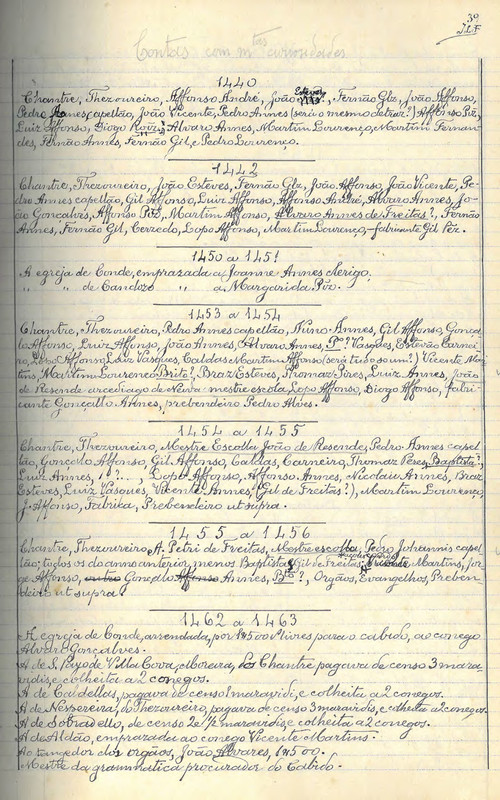 39
J.L.F
Contas com m.tas curiosidades
1440
Chantre, Thezoureiro, Affonso André, João Esteves, Fernão Glz, João Affonso,
Pedro Annes capellão, João Vicente, Pedro Annes (será o mesmo detraz?) Affonso Piz,
Luiz Affonso, Diogo Roiz, Alvaro Annes, Martim Lourenço, Martim Fernan-
des, Fernão Annes, Fernão Gil, e Pedro Lourenço.
1442
Chantre, Thezoureiro, João Esteves, Fernão Glz, João Affonso, João Vicente, Pe-
dro Annes capellão, Gil Affonso, Luiz Affonso, Affonso André, Alvaro Annes, Jo-
ão Gonçalvis, Affonso Piz, Martim Affonso, Alvaro Annes de Freitas?, Fernão
Annes, Fernão Gil, Cerredo, Lopo Affonso, Martim Lourenço, fabricante Gil Piz.
1450 a 1451
A egreja de Conde, emprazada a Joanne Annes
" " de Candoso " a Margarida Piz.
1453 a 1454
Chantre, Thezoureiro, Pedro Annes capellão, Nuno Annes, Gil Affonso, Gonça-
lo Affonso, Luiz Affonso, João Annes, Alvaro Annes, P? Vasques, Estevão Carnei-
ro, Lopo Affonso, Luiz Vasques, Caldas, Martim Affonso (será tudo so um?) Vicente Mar-
tins, Martim Lourenço, Brito?, Braz Esteves, Thomaz Pires, Luiz Annes, João
de Resende arcediago de Neiva mestre escola, Lopo Affonso, Diogo Affonso, fabri-
cante Gonçallo Annes, prebendeiro Pedro Alves.
1454 a 1455
Chantre, Thezoureiro, Mestre Escolla João de Resende, Pedro Annes capel-
lão, Gonçalo Affonso, Gil Affonso, Caldas, Carneiro, Thomaz Peres, Baptista?,
Luiz Annes, I?..., Lopo Affonso, Affonso Annes, Nicolau Annes, Braz
Esteves, Luiz Vasques, Vicente Annes, (Gil de Freitas?), Martim Lourenço,
J. Affonso, Fabrika, Prebendeiro ut supra.
1455 a 1456
Chantre, Thezoureiro A. Petri de Freitas, Mestre escolla, Pedro Johannis capel-
lão; todos os do anno anterior, menos Baptista e Gil de Freitas; Martins, Jor-
ge Affonso, outro Gonçalo Affonso Annes, Orgãos, Evangelhos, Preben-
deiro ut supra.
1462 a 1463
A egreja de Conde, arrendada, por 1$500 livres para o cabido, ao conego
Alvaro Gonçalves.
A de S. Payo de Villa Cova, e Moreira, do Chantre pagava de censo 3 mara-
vidis, e colheita a 2 conegos.
A de Caldellas, pagava de censo 1 maravidi, e colheita a 2 conegos.
A de Nespereira, do Thezoureiro, pagava de censo 3 maravidis, e colheita a 2 conegos.
A de Sobradello, de censo 2 e 1/2 maravidis e colheita a 2 conegos.
A de Aldão, emprazada ao conego Vicente Martins.
Ao tangedor dos orgãos, João Alvares, 1$500.
Mestre da grammatica procurador do Cabido.